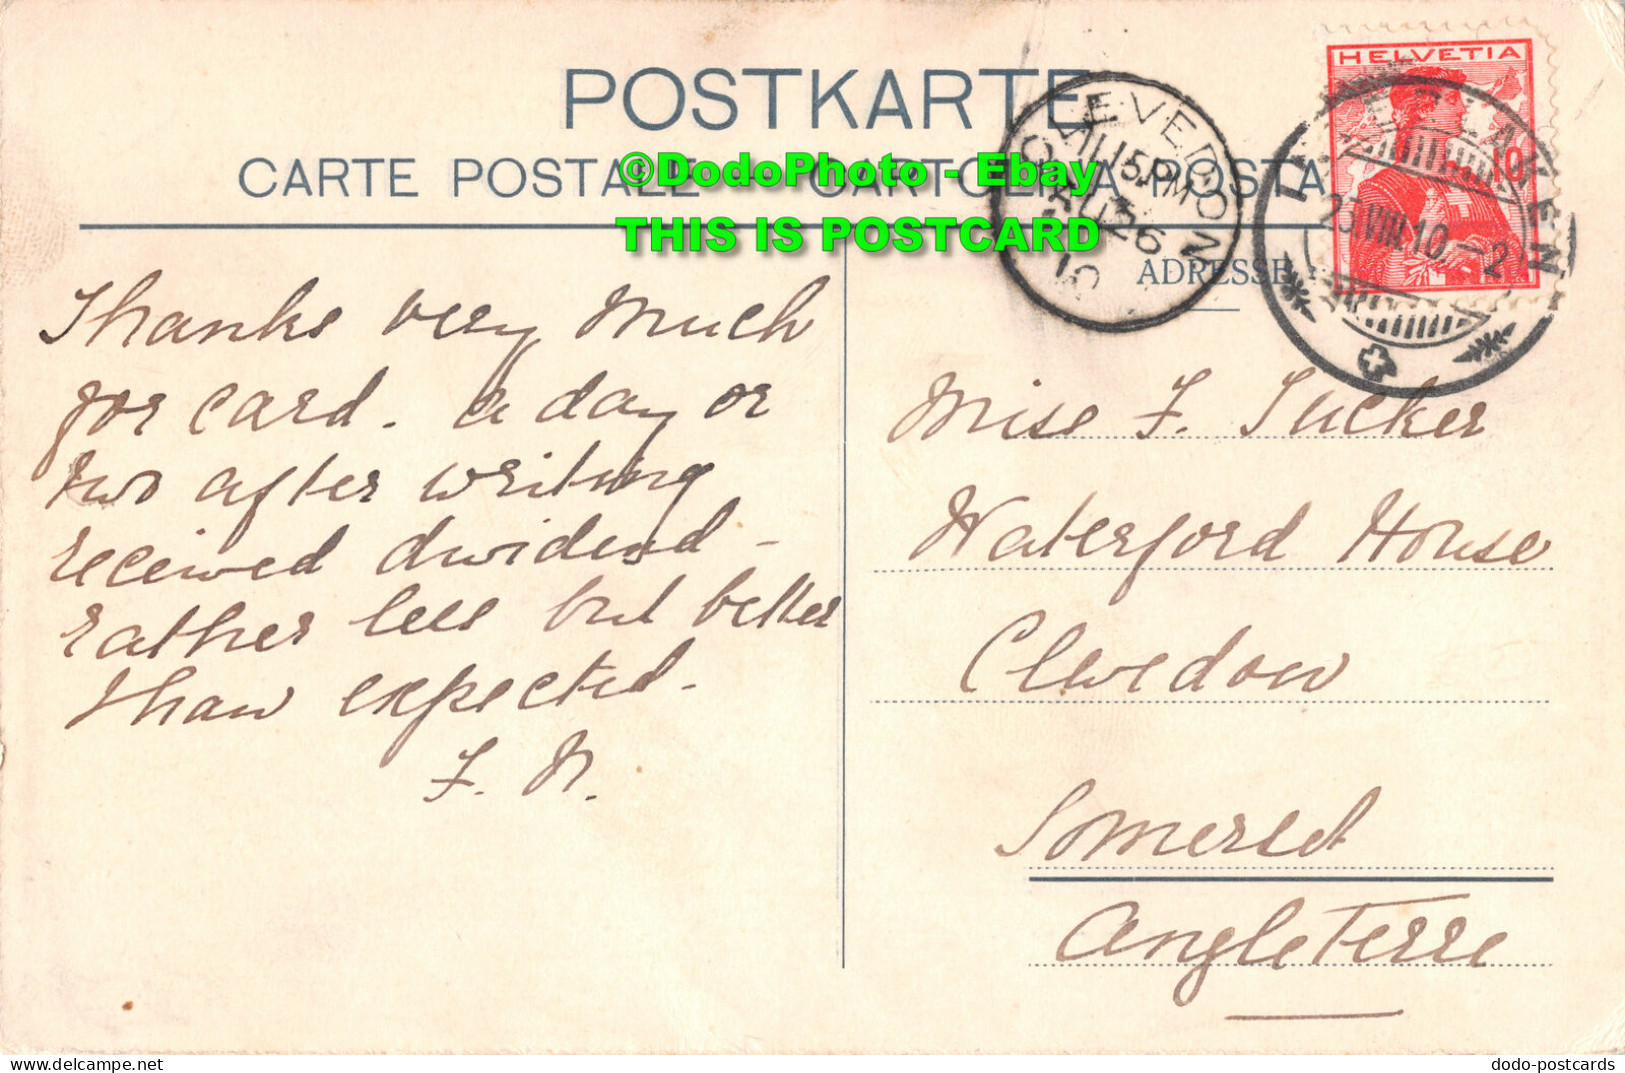 POSTKARTE
CARTE POSTALE - CARTOLINA POSTA
©DodoPhoto - Ebay
THIS IS POSTCARD
CLEVEDON
11 15 PM
AU 26
HELVETIA
10
INTERLAKEN
25.VIII.10.-2
ADRESSE
Thanks very much
for card. a day or
two after writing
received dividend -
rather less but better
than expected.
F. N.
Miss F. Tucker
Waterford House
Clevedon
Somerset
Angleterre
dodo-postcards